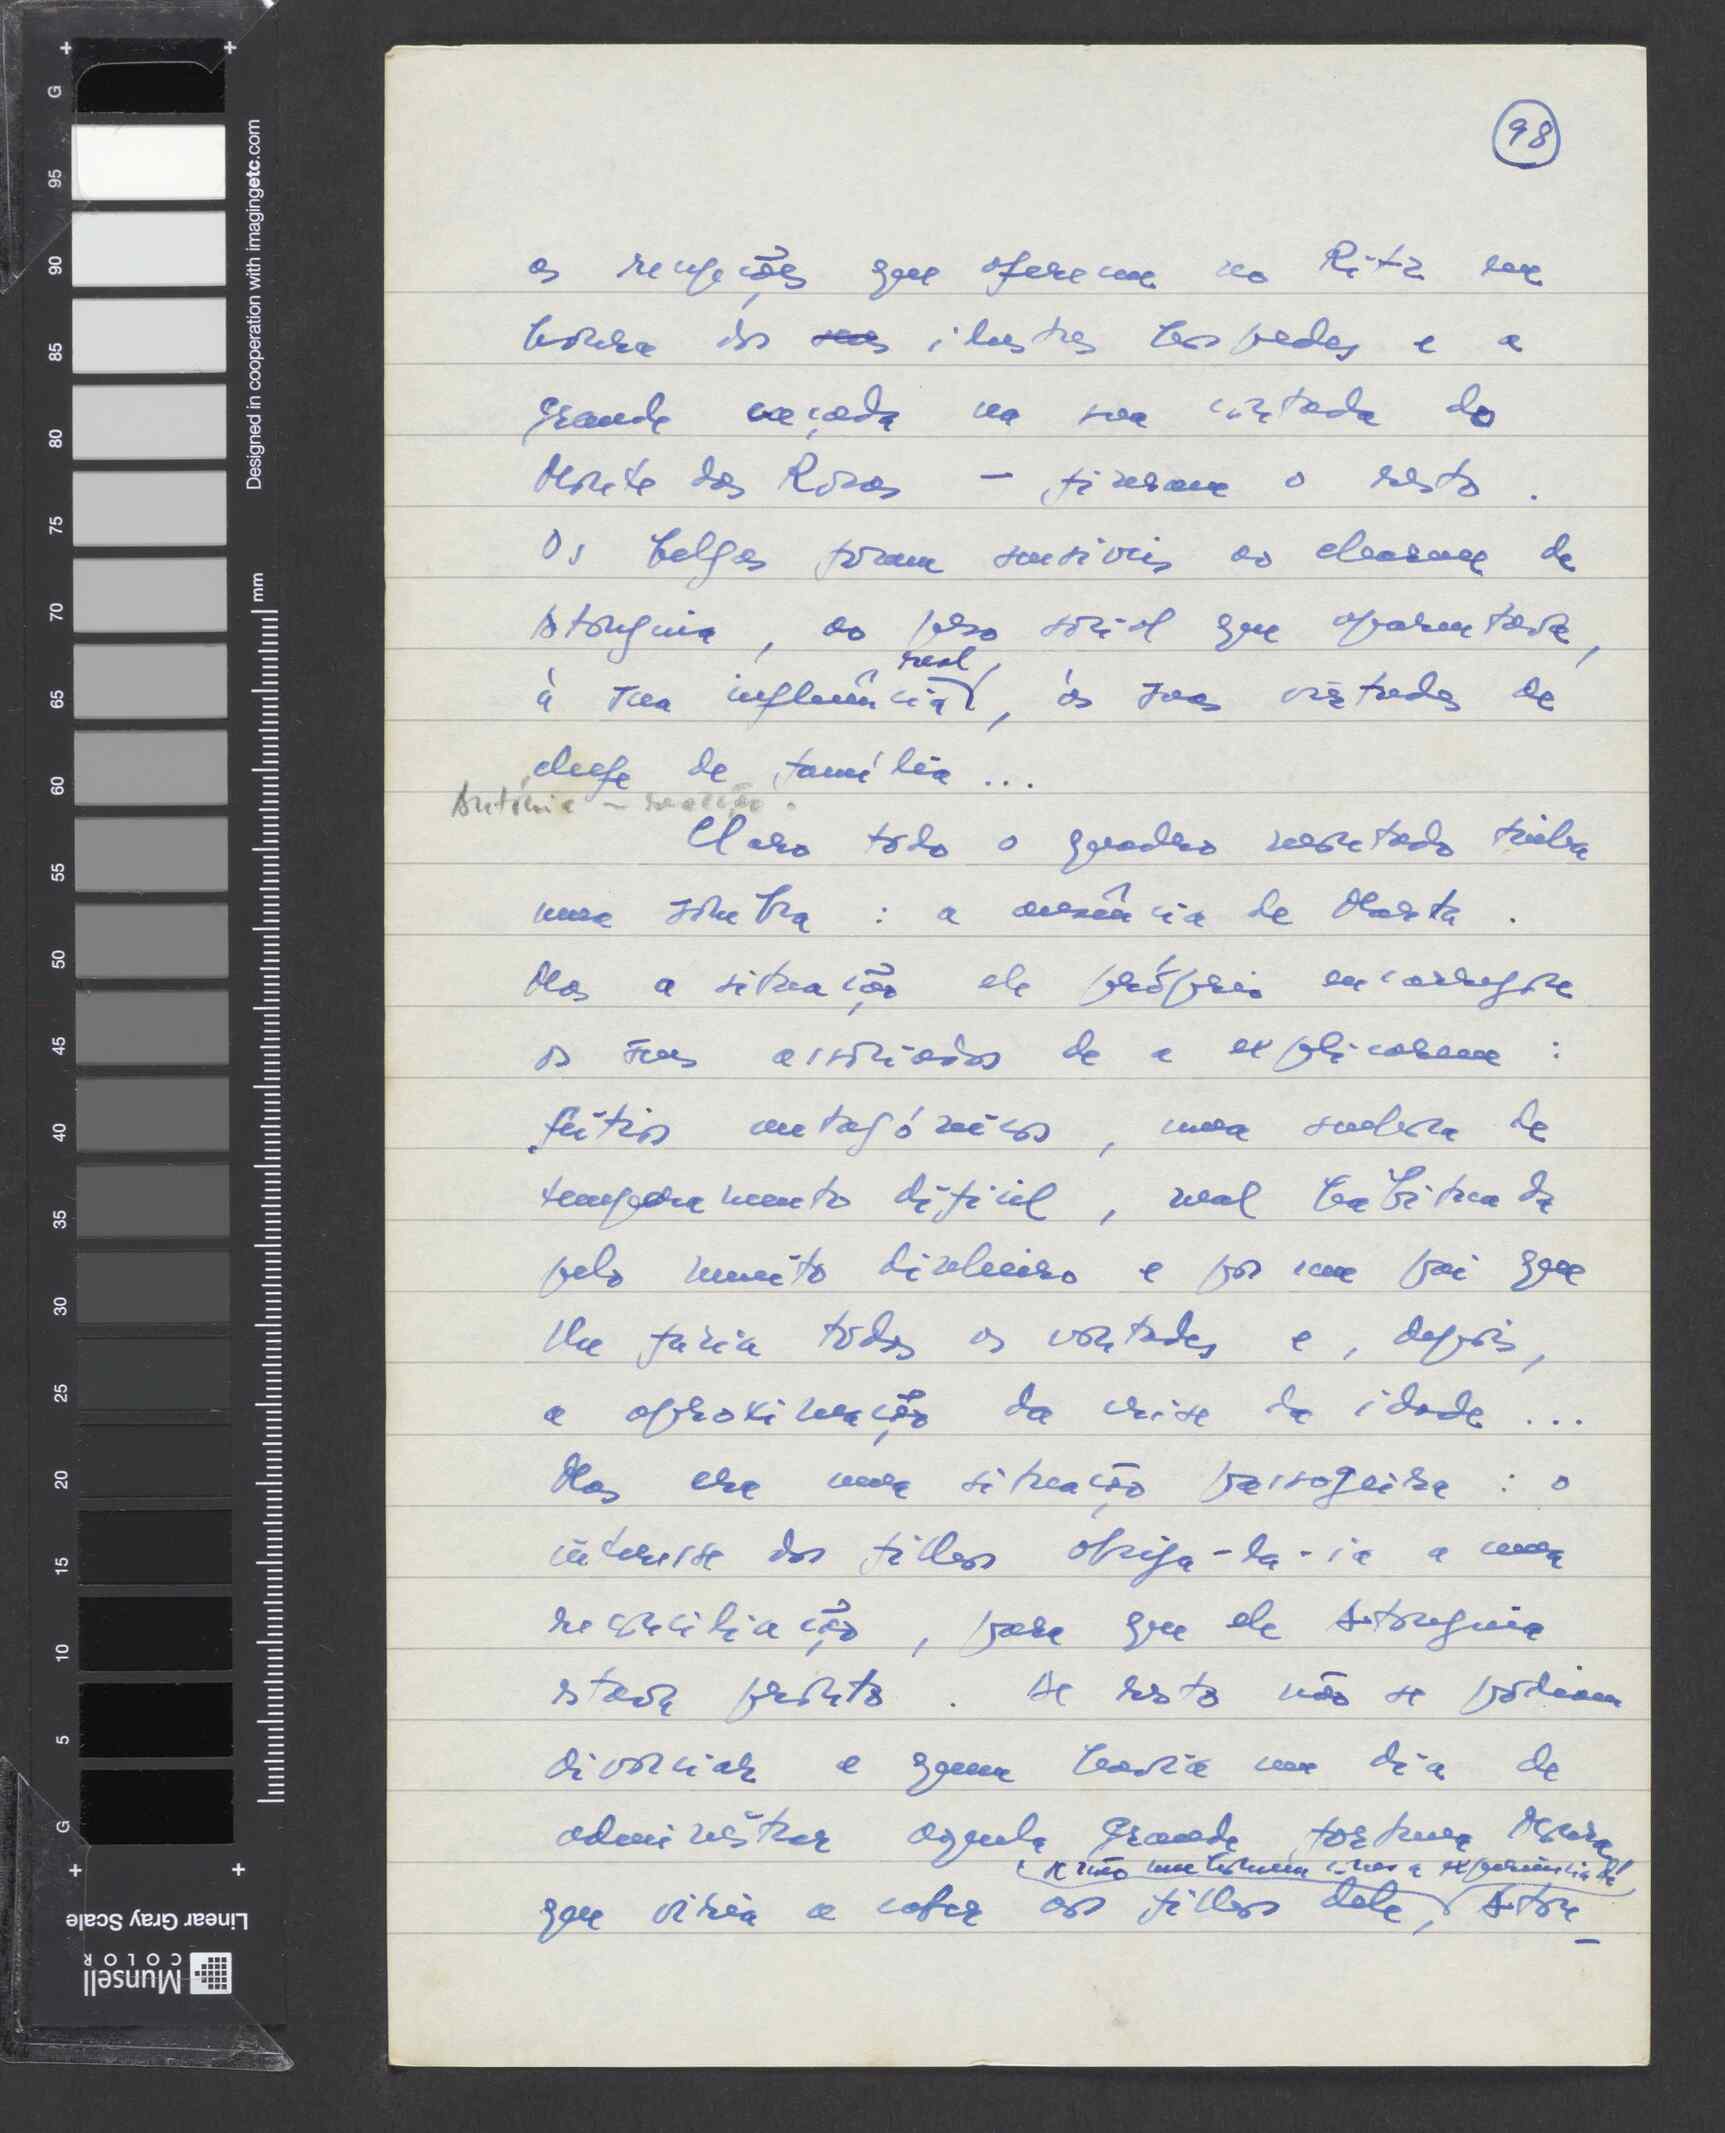 98
as recepções que ofereceu no Ritz em
honra dos seus ilustres hóspedes e a
grande caçada na sua coutada do
Monte das Rosas — fizeram o resto.
Os belgas foram sensíveis ao charme de
Astorguia, ao peso social que aparentava,
real,
à sua influência, às suas virtudes de
chefe de família...
António — reacção.
Claro todo o quadro montado tinha
uma sombra: a ausência de Marta.
Mas a situação ele próprio encarregou
os seus associados de a explicarem:
feitios antagónicos, uma senhora de
temperamento difícil, mal habituada
pelo muito dinheiro e por um pai que
lhe fazia todas as vontades e, depois,
a aproximação da crise da idade...
Mas era uma situação passageira: o
interesse dos filhos obriga-la-ia a uma
reconciliação, para que ele Astorguia
estava pronto. De resto não se podiam
divorciar e quem havia um dia de
administrar aquela grande fortuna
se não um homem com a experiência de
que viria a caber aos filhos dele, Astor-
Designed in cooperation with imagingetc.com
mm
G
95
90
85
80
75
70
65
60
55
50
45
40
35
30
25
20
15
10
5
G
Linear Gray Scale
Munsell
COLOR